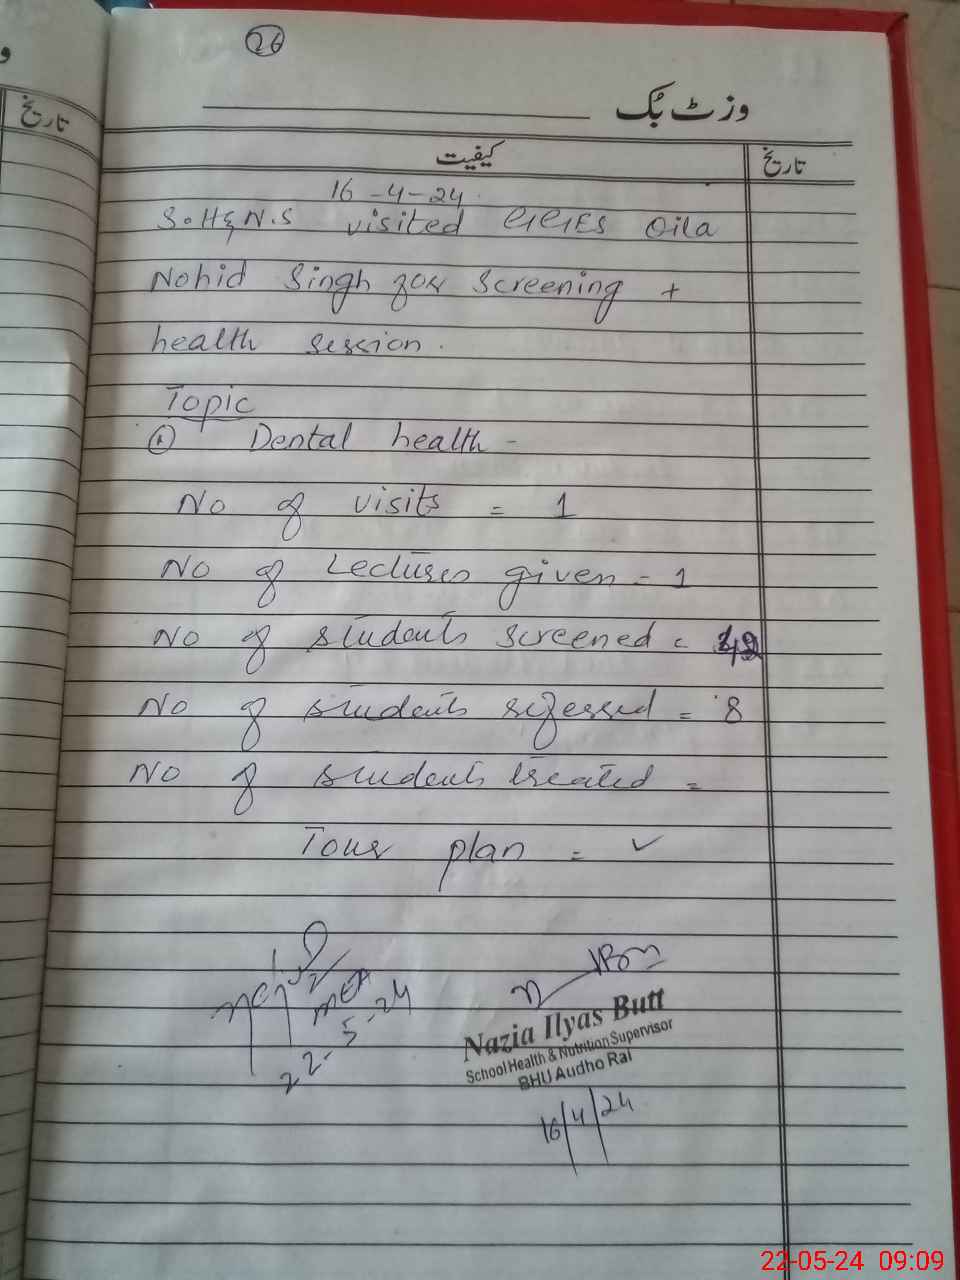 26
وزٹ بُک
کیفیت
تاریخ
تاریخ
16-4-24.
S.H&N.S visited GGES Qila
Nohid Singh for screening +
health session.
Topic
① Dental health -
No of visits = 1
No of Lectures given = 1
No of students screened =
No of students referred = 8
No of students treated =
Tour plan = ✓
MEA
22-5-24
Nazia Ilyas Butt
School Health & Nutrition Supervisor
BHU Audho Rai
16/4/24
22-05-24 09:09